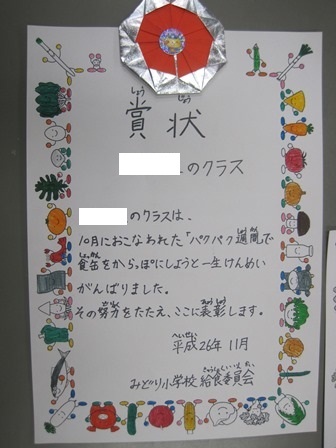 賞状
のクラス
のクラスは、
10月におこなわれた「パクパク週間」で
食缶をからっぽにしようと一生けんめい
がんばりました。
その努力をたたえ、ここに表彰します。
平成26年11月
みどり小学校 給食委員会